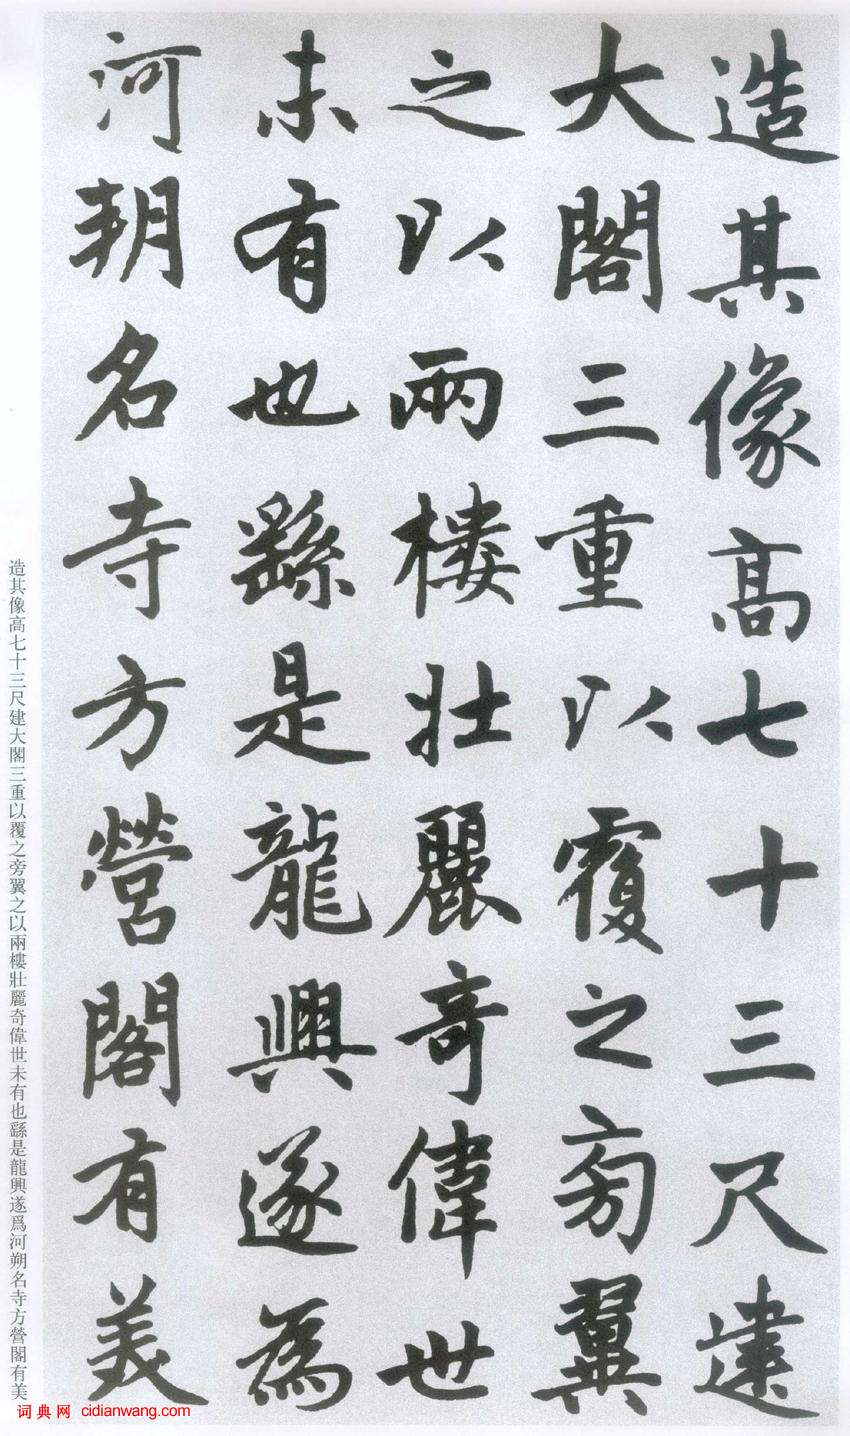 造其像高七十三尺建
大閣三重以覆之旁翼
之以兩樓壯麗奇偉世
未有也繇是龍興遂為
河朔名寺方營閣有美
造其像高七十三尺建大閣三重以覆之旁翼之以兩樓壯麗奇偉世未有也繇是龍興遂爲河朔名寺方營閣有美
词典网 cidianwang.com